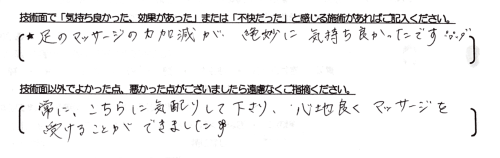 技術面で「気持ち良かった、効果があった」または「不快だった」と感じる施術があればご記入ください。
★足のマッサージの力加減が 絶妙に 気持ち良かったです
技術面以外でよかった点、悪かった点がございましたら遠慮なくご指摘ください。
常に、こちらに気配りして下さり、心地良く マッサージを
受けることが できました